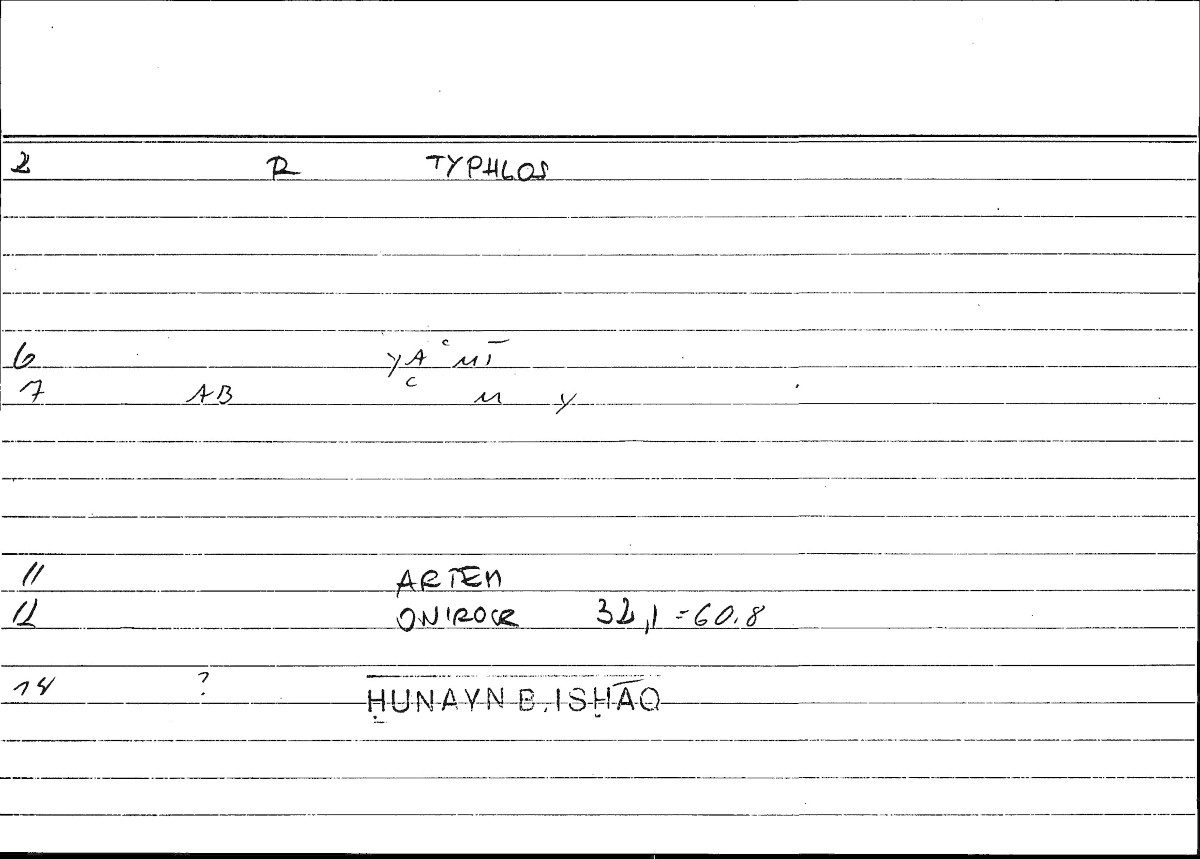 2 R TYPHLOS
6 YA ʿMĪ
7 ʿAB M Y
11 ARTEM
12 ONIROCR 32,1 = 60.8
14 ? ḤUNAYN B. ISḤĀQ